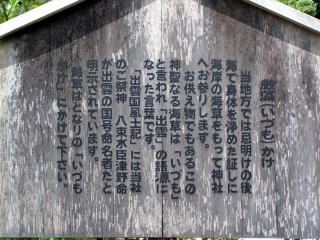 厳藻(いづも)かけ
当地方では忌明けの後
海で身体を浄めた証しに
海岸の海草をもって神社
へお参りします。
お供え物でもあるこの
神聖なる海草は「いづも」
と言われ「出雲」の語源に
なった言葉です。
「出雲国風土記」には当社
のご祭神 八束水臣津野命
が出雲の国号命名者だと
明示されています。
海草はとなりの「いづも
かけ」にかけて下さい。